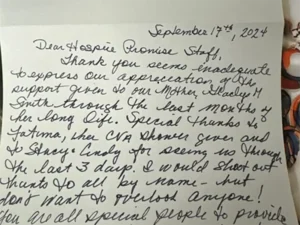 September 17th, 2024
Dear Hospice Promise Staff,
Thank you seems inadequate
to express our appreciation of the
support given to our Mother
Smith through the last months of
her long life. Special thanks to
Fatima, her CNA shower giver and
to Stacy & Cindy for seeing us through
the last 3 days. I would shout out
thanks to all by name - but
don't want to overlook anyone!
You are all special people to provide